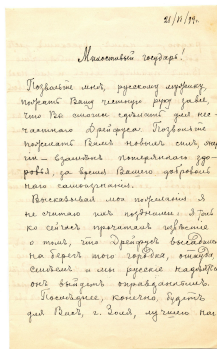 21/VI/99.
Милостивый государь!
Позвольте мнѣ, русскому мужику,
пожать Вашу честную руку за все,
что Вы смогли сдѣлать для нес-
частнаго Дрейфуса. Позвольте
пожелать Вамъ новыхъ силъ,
взамѣнъ потеряннаго здо-
ровья, за время Вашего добровольнаго
самоизгнания.
Высказывая мои пожелания я
не считаю ихъ поздними. Я толь
ко сейчасъ прочиталъ извѣстие
о томъ, что Дрейфусъ
на берегъ того городка, откуда,
мы русские надѣемся
онъ выйдетъ оправданнымъ.
Послѣднее, конечно, будетъ
для Васъ, г. Золя, лучшею на